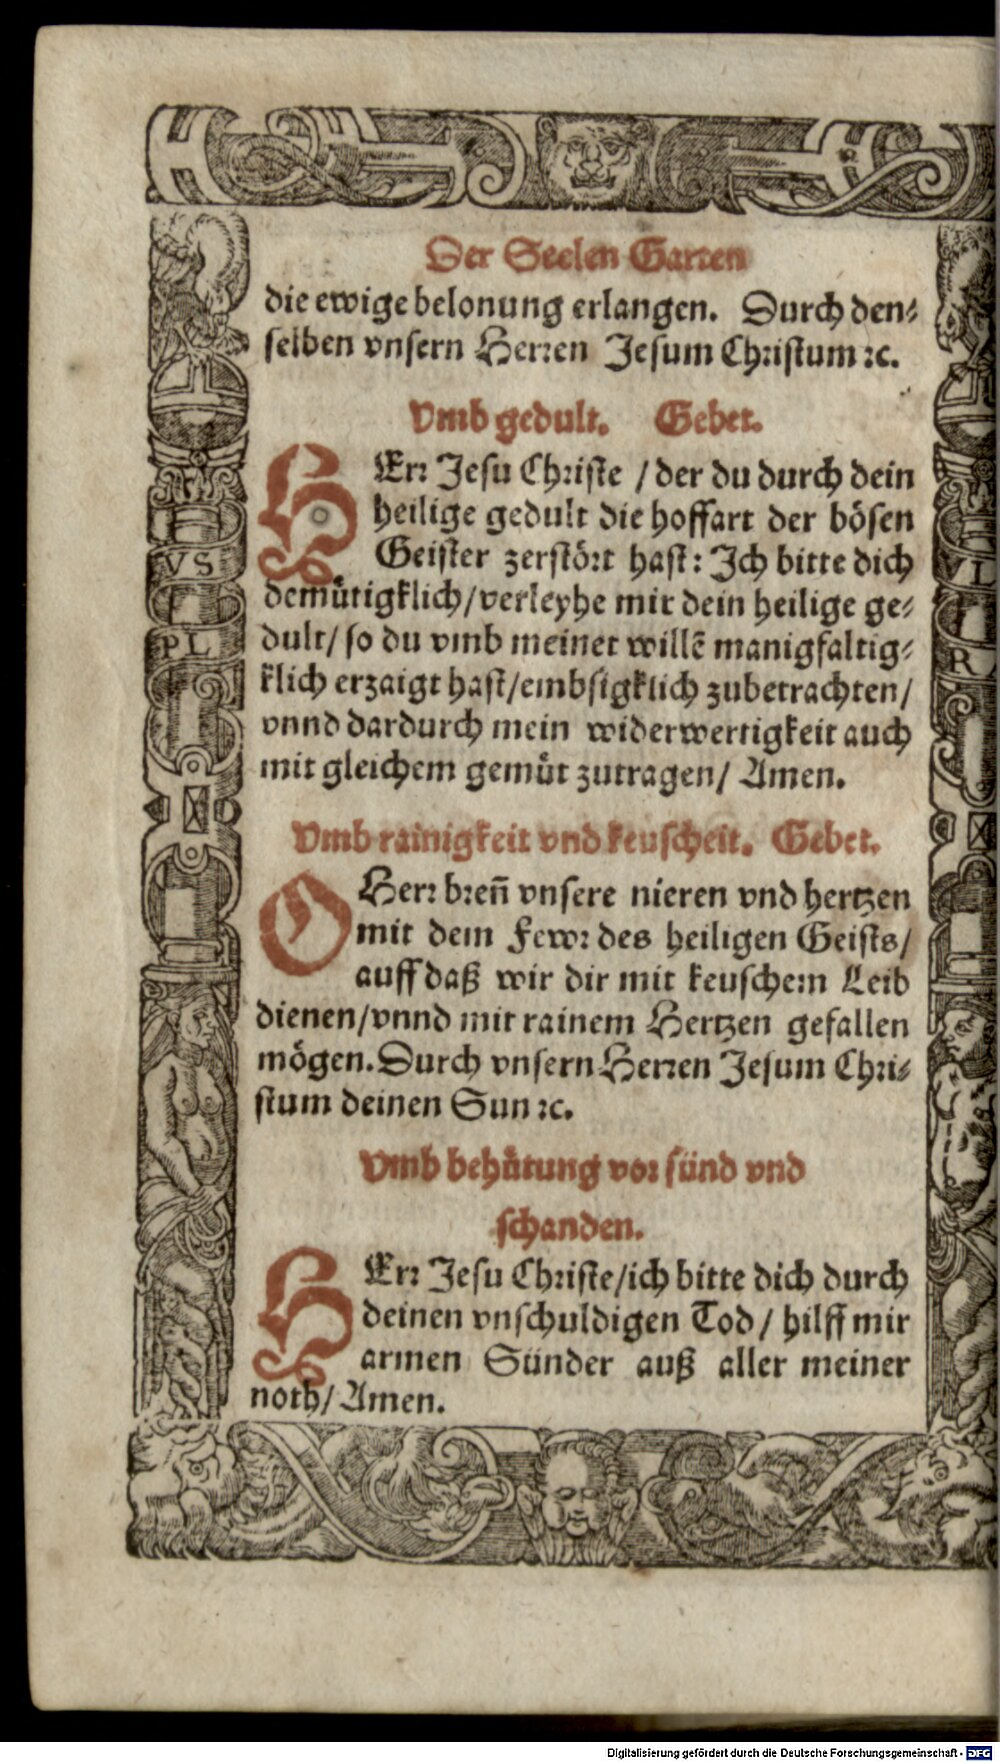 Der Seelen Garten
die ewige belonung erlangen. Durch den⸗
selben vnsern Herren Jesum Christum ꝛc.
Vmb gedult. Gebet.
HErr Jesu Christe / der du durch dein
heilige gedult die hoffart der bösen
Geister zerstört hast: Ich bitte dich
demuͤtigklich/verleyhe mir dein heilige ge⸗
dult/ so du vmb meinet willē manigfaltig⸗
klich erzaigt hast/embsigklich zubetrachten/
vnnd dardurch mein widerwertigkeit auch
mit gleichem gemuͤt zutragen/ Amen.
Vmb rainigkeit vnd keuscheit. Gebet.
O Herr breñ vnsere nieren vnd hertzen
mit dem Fewr des heiligen Geists/
auff daß wir dir mit keuschem Leib
dienen/vnnd mit rainem Hertzen gefallen
mögen. Durch vnsern Herren Jesum Chri⸗
stum deinen Sun ꝛc.
Vmb behuͤtung vor sünd vnd
schanden.
HErr Jesu Christe/ich bitte dich durch
deinen vnschuldigen Tod / hilff mir
armen Sünder auß aller meiner
noth/ Amen.
VS
PL
VL
R
Digitalisierung gefördert durch die Deutsche Forschungsgemeinschaft - DFG